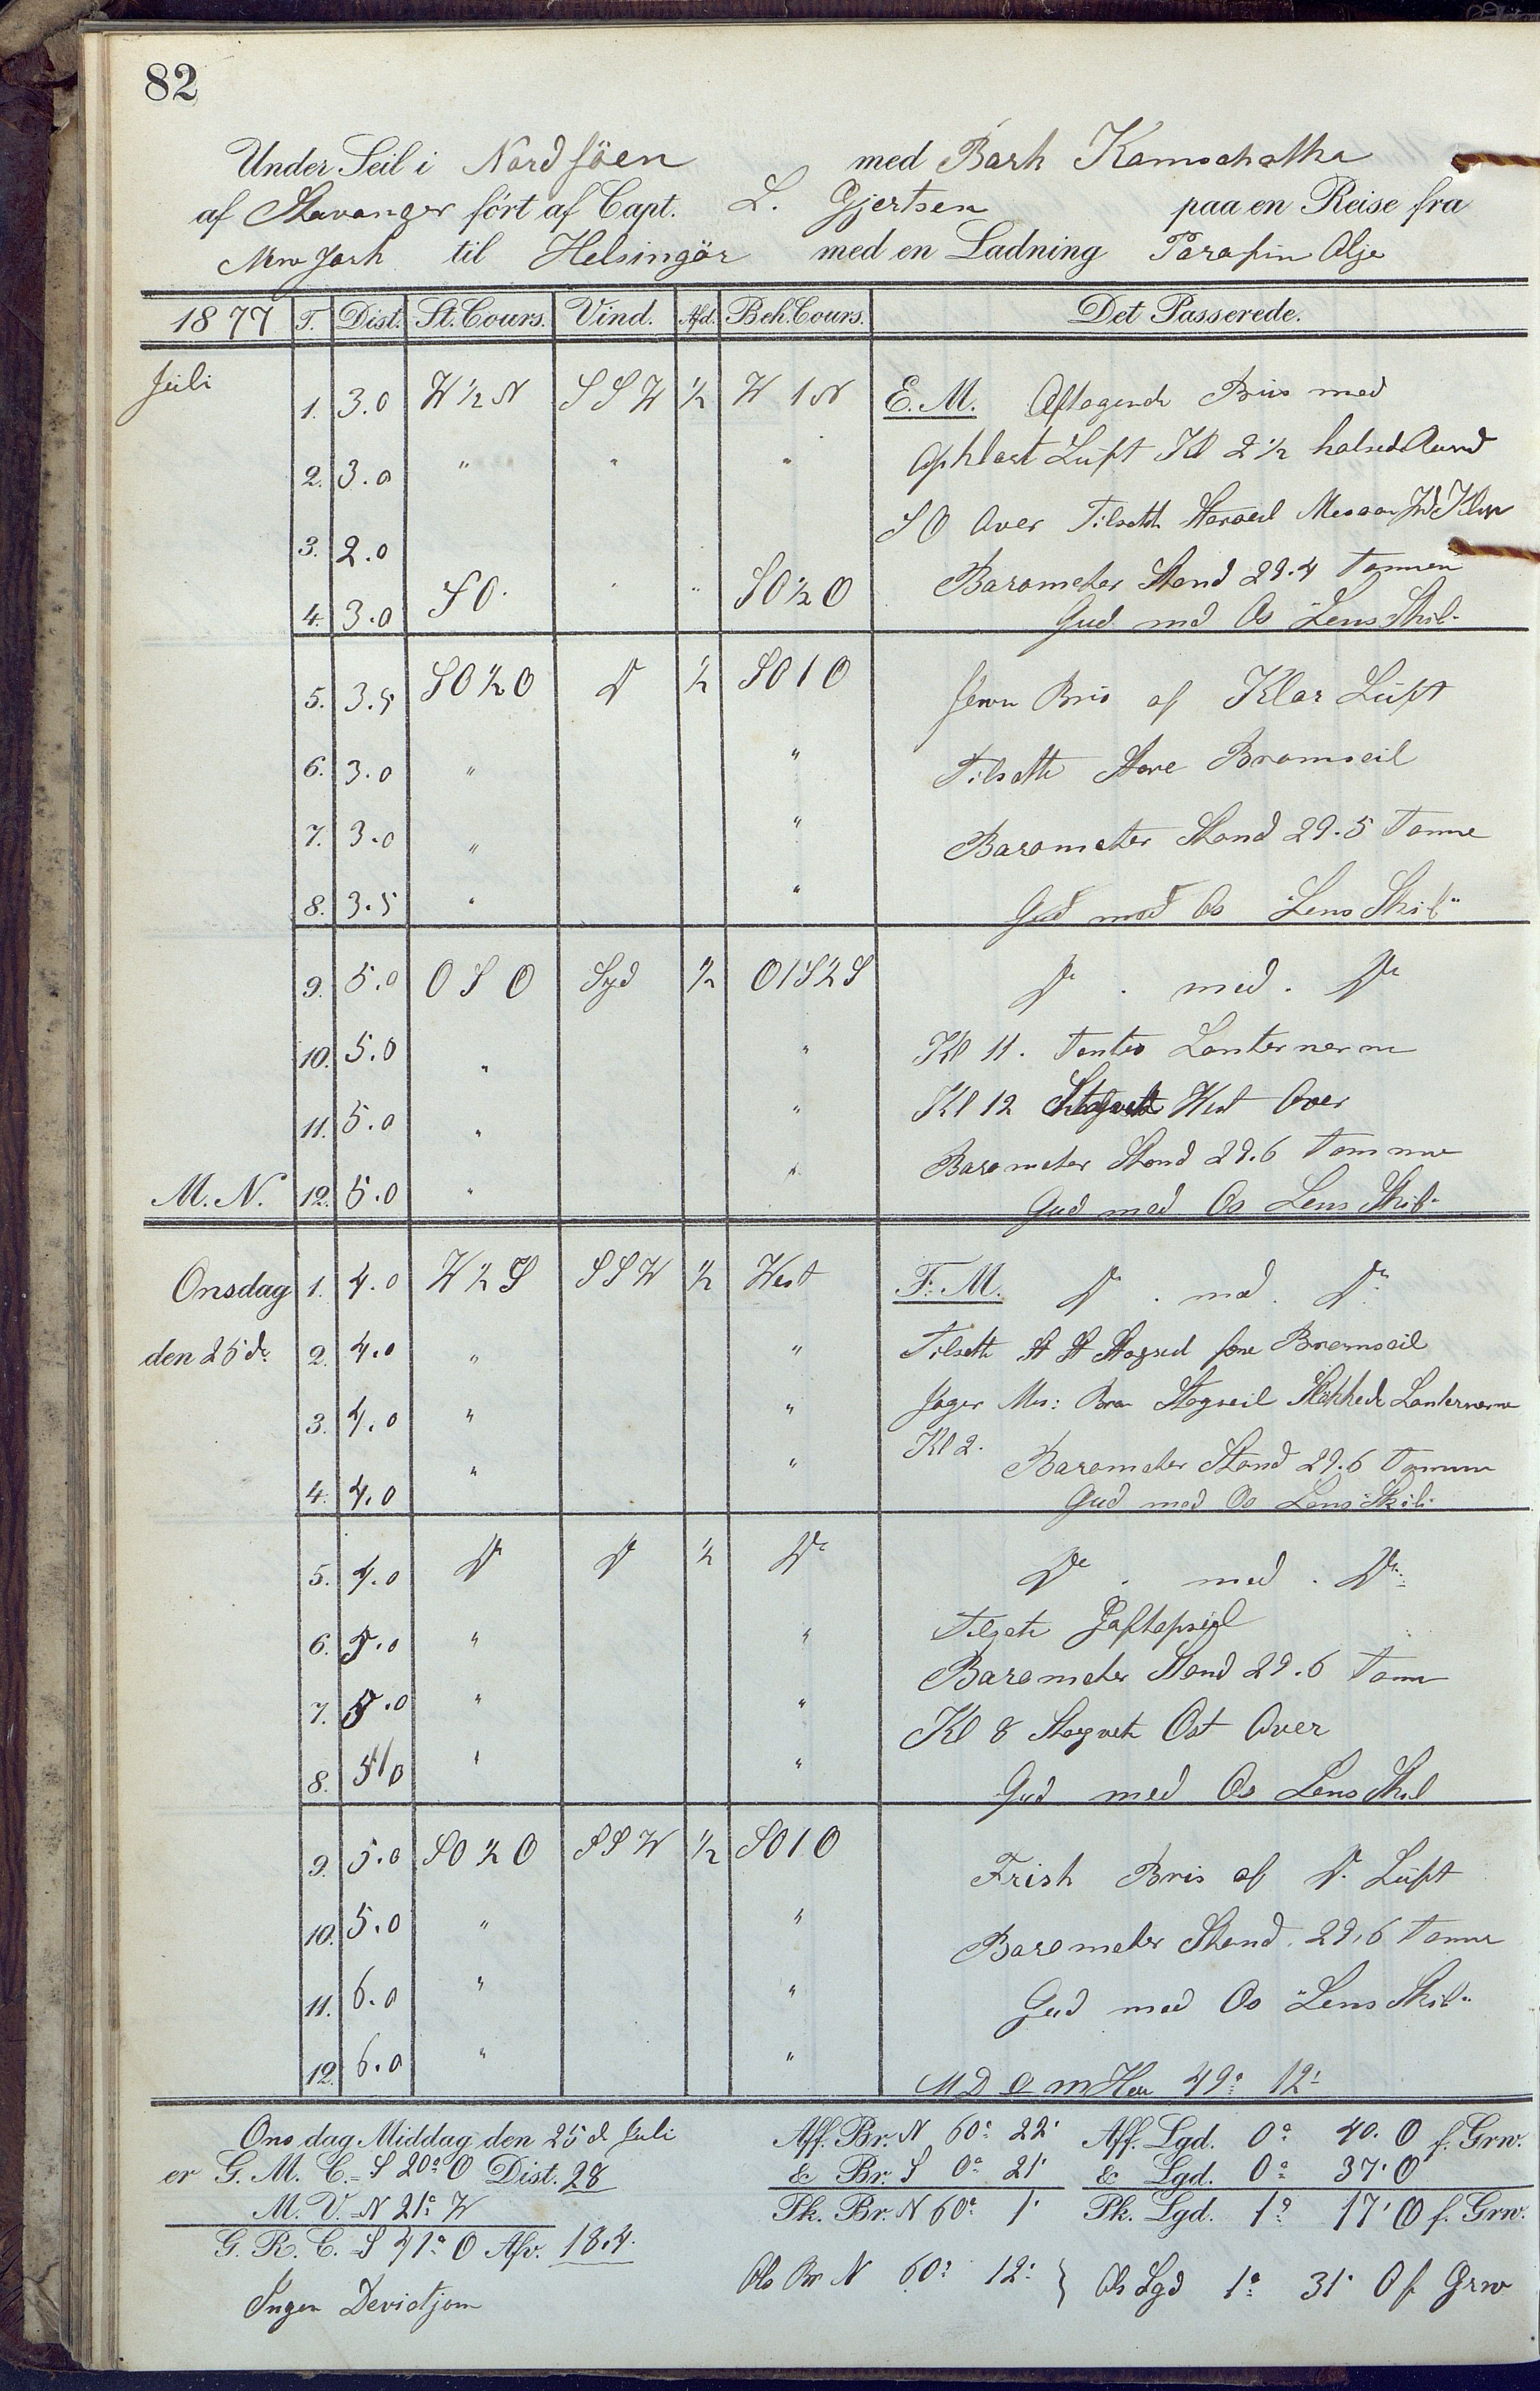 82
Under Seil i Nordsöen med Bark Kamschatka
af Stavanger fört af Capt. L. Gjertsen paa en Reise fra
New York til Helsingör med en Ladning Parafin Olje
1877 T. Dist. St. Cours. Vind. Afd. Beh. Cours. Det Passerede.
Juli 1. 3.0 W ½ N SSW ½ W 1 N E.M. Aftagende Bris med
2. 3.0 " " " Opklart Luft Kl 2½ halsede Rund
3. 2.0 SO Over Tilsatte Storseil Mesan
4. 3.0 SO. " " SO ½ O Barometer Stand 29.4 Tommer
Gud med Os Lens Skib.
5. 3.5 SO ½ O Do ½ SO 1 O Jevn Bris af Klar Luft
6. 3.0 " " Tilsatte Store Bramseil
7. 3.0 " " Barometer Stand 29.5 Tomme
8. 3.5 " " Gud med Os Lens Skib"
9. 5.0 O S O Syd ½ Do . med . Do
10. 5.0 " " Kl 11. Tentes Lanternerne
11. 5.0 " " Kl 12 Stagvendte West Over
Barometer Stand 29.6 Tomme
M.N. 12. 5.0 " " Gud med Os Lens Skib.
Onsdag 1. 4.0 W ½ S SSW ½ West F.M. Do . med . Do
den 25 de 2. 4.0 " " Tilsatte St St Stagseil fore Bramseil
3. 4.0 " " Jager Mes: Bra Stagseil Slukkede Lanternerne
Kl 2.
4. 4.0 " " Barometer Stand 29.6 Tomme
Gud med Os Lens Skib.
5. 4.0 Do Do ½ Do Do . med . Do
6. 5.0 " " Tilsatte Gaftopseil
Barometer Stand 29.6 Tomm
7. 5.0 " " Kl 8 Stagvendte Ost Over
8. 5.0 " " Gud med Os Lens Skib
9. 5.0 SO ½ O SSW ½ SO 1 O Frisk Bris af Do Luft
10. 5.0 " " Barometer Stand. 29.6 Tomme
11. 6.0 " " Gud med Os "Lens Skib"
12. 6.0 " " 49° 12'
Onsdag Middag den 25 d Juli Aff. Br. N 60° 22' Aff. Lgd. 0° 40. O f. Grw.
er G. M. C. = S 20° O Dist. 28 & Br. S 0° 21' & Lgd. 0° 37' O
M. V. = N 21° W Pk. Br. N 60° 1' Pk. Lgd. 1° 17' O f. Grw.
G. R. C. = S 41° O Afv. 18.4.
Obs Br N 60° 12' } Obs Lgd 1° 31' O f. Grw
Ingen Deviatjon